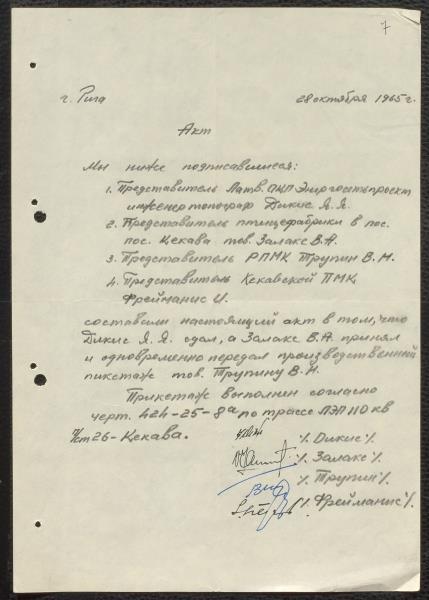 7
г. Рига 28 октября 1965 г.
Акт
Мы ниже подписавшиеся:
1. Представитель Латв. ОКП Энергосетьпроект
инженер топограф Дикис Я.Я.
2. Представитель птицефабрики в пос.
пос. Кекава тов. Залакс В.А.
3. Представитель РПМК Трупин В.М.
4. Представитель Кекавской ПМК
Фрейманис И.
составили настоящий акт в том, что
Дикис Я.Я. сдал, а Залакс В.А. принял
и одновременно передал производственный
пикетаж тов. Трупину В.М.
Пикетаж выполнен согласно
черт. 424-25-8а по трассе ЛЭП 110 кв
26-Кекава.
/. Дикис /.
/. Залакс /.
/. Трупин /.
/. Фрейманис /.